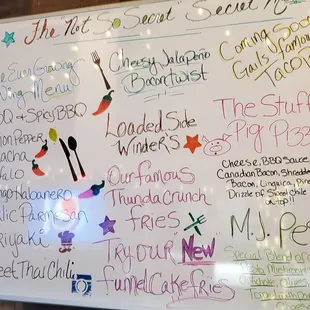 The Not So Secret "Secret
Ever Growing
Wing Menu
BBQ & Spicy BBQ
Lemon Pepper
Habanero
Garlic Parmesan
Teriyaki
Sweet Thai Chili
Cheesy Jalapeño
Bacon Twist
Loaded Side
Winder's
Our famous
Thunda Crunch
fries
Try our "New"
funnel Cake fries
Coming Soon
Gail's famous
Tacos
The Stuff
Pig Pizz
Cheese, BBQ Sauce
Canadian Bacon, Shredde
Bacon, Linguica, Pine
Drizzle of Sweet Chile
on top!!
M.J. Pe
Special Blend of
Mushrooms
Olives